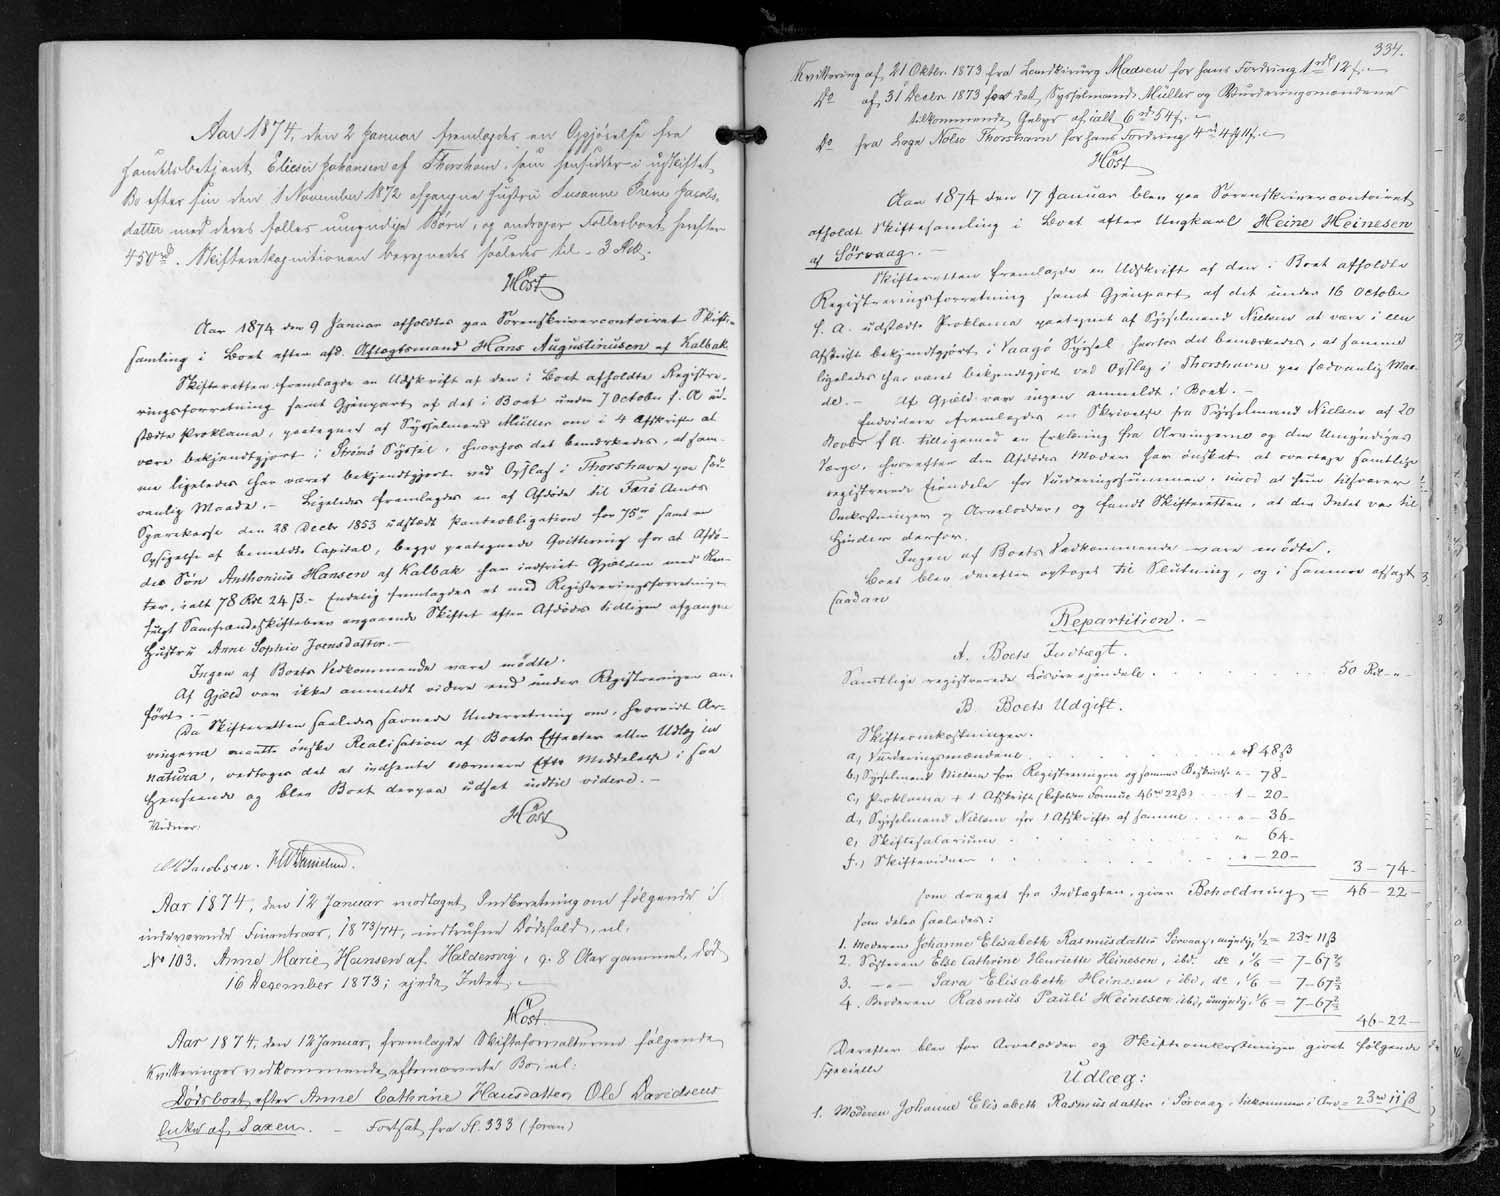 Aar 1874, den 2 Januar fremlagdes en Opgjørelse fra
Handelsbetjent Eliesar Johansen af Thorshavn, som hensidder i uskiftet
Bo efter sin den 1 November 1872 afgangne Hustru Susanne Irene Jacobs-
datter med deres fælles umyndige Børn, og andrager Fællesboet herefter
450 rd. Skifterekognitionen beregnedes saaledes til - 3 Rdl.
Høst
Aar 1874 den 9 Januar afholdtes paa Sorenskrivercontoiret Skifte-
samling i Boet efter afd. Aftægtsmand Hans Augustinusen af Kalbak.
Skifteretten fremlagde en Udskrift af den i Boet afholdte Registre-
ringsforretning samt Gjenpart af det i Boet under 7 October f. A ud-
stædte Proklama, paategnet af Sysselmand Müller om i 4 Afskrifter at
være bekjendtgjort i Strømø Syssel, hvorhos det bemærkedes, at sam-
me ligeledes har været bekjendtgjort ved Opslag i Thorshavn paa sæd-
vanlig Maade. - Ligeledes fremlagdes en af Afdøde til Færø Amts
Sparekasse den 28 Decbr 1853 udstædt Panteobligation for 75 rd samt en
Opsigelse af bemeldte Capital, begge paategnede Qvittering for at Afdø-
des Søn Anthonius Hansen af Kalbak har indfriet Gjælden med Ren-
ter, ialt 78 Rdl. 24 ß. - Endelig fremlagdes et med Registreringsforretningen
fulgt Samfrændeskiftebrev angaaende Skiftet efter Afdødes tidligen afgangne
Hustru Anne Sophie Joensdatter. -
Ingen af Boets Vedkommende vare mødte.
Af Gjæld var ikke anmeldt videre end under Registreringen an-
ført. -
Da Skifteretten saaledes savnede Underretning om, hvorvidt Ar-
vingerne maatte ønske Realisation af Boets Effecter eller Udlæg in
natura, vedtoges det at indhente nærmere Meddelelse i saa
Henseende og blev Boet derpaa udsat indtil videre. -
Høst
Vidner:
Jacobsen. Danielsen.
Aar 1874, den 12 Januar modtaget Indberetning om følgende i
indeværende Finantsaar, 1873/74, indtrufne Dødsfald, nl.
No 103. Anne Marie Hansen af Haldersvig, g. 8 Aar gammel, død
16 Dezember 1873; ejede Intet.
Høst.
Aar 1874, den 12 Januar, fremlagde Skifteforvalteren følgende
Kvitteringer vedkommende efternævnte Bo, nl:
Dødsboet efter Anne Cathrine Hansdatter, Ole Davidsens
Enke af Saxen. - Fortsat fra Fl. 333 (foran)
334.
Kvittering af 21 Oktbr. 1873 fra Landkirurg Madsen for hans Fordring 1 rdl 12 ß. -
Do af 31 Decbr 1873 for det Sysselmand Müller og Vurderingsmændene
tilkommende Gebyr af ialt 6 rd 54 ß. -
Do fra Nolsø Thorshavn for hans Fordring 4 rd 4 ß. -
Høst
Aar 1874 den 17 Januar blev paa Sorenskrivercontoiret
afholdt Skiftesamling i Boet efter Ungkarl Heine Heinesen
af Sørvaag. -
Skifteretten fremlagde en Udskrift af den i Boet afholdte
Registreringsforretning samt Gjenpart af det under 16 October
f. A. udstædte Proklama paategnet af Sysselmand Nielsen at være i een
Afskrift bekjendtgjort i Vaagø Syssel, hvorhos det bemærkedes, at samme
ligeledes har været bekjendtgjort ved Opslag i Thorshavn paa sædvanlig Maa-
de. - Af Gjæld var ingen anmeldt i Boet. -
Endvidere fremlagdes en Skrivelse fra Sysselmand Nielsen af 20
Novbr f. A. tilligemed en Erklæring fra Arvingerne og den Umyndiges
Værge, hvorefter den Afdødes Moder har ønsket at overtage samtlige
registrerede Eiendele for Vurderingssummen, imod at hun tilsvarer
Omkostninger og Arvelodder, og fandt Skifteretten, at den Intet var til
Hinder derfor.
Ingen af Boets Vedkommende vare mødte.
Boet blev derefter optaget til Slutning, og i samme afsagt
saadan
Repartition. -
A. Boets Indtægt.
Samtlige registrerede Løsøreejendele . . . . . . . 50 Rdl "
B. Boets Udgift.
Skifteomkostninger.
a, Vurderingsmændene . . . . . " rd 48 ß
b, Sysselmand Nielsen for Registreringen og sammes Beskrivelse " - 78 -
c, Proklama + 1 Afskrift (beholden Formue 46 rd 22 ß) . . . 1 - 20 -
d, Sysselmand Nielsen for 1 Afskrift af samme . . . . " - 36 -
e, Skiftesalarium . . . . " 64 -
f, Skiftevidner . . . . " - 20 -
3 - 74 -
som draget fra Indtægten, giver Beholdning = 46 - 22 -
som deles saaledes:
1. Moderen Johanne Elisabeth Rasmusdatter Sørvaag, myndig, 1/2 = 23 rd 11 ß
2. Søsteren Else Cathrine Henriette Heinesen, ibd. do, 1/6 = 7 - 67 2/3
3. - " - Sara Elisabeth Heinesen, ibd, do, 1/6 = 7 - 67 2/3
4. Broderen Rasmus Pauli Heinesen ibd, umyndig, 1/6 = 7 - 67 2/3
46 - 22 -
Derefter blev for Arvelodder og Skifteomkostninger givet følgende
specielle
Udlæg:
1. Moderen Johanne Elisabeth Rasmusdatter i Sørvaag, tilkommer i Arv = 23 rd 11 ß